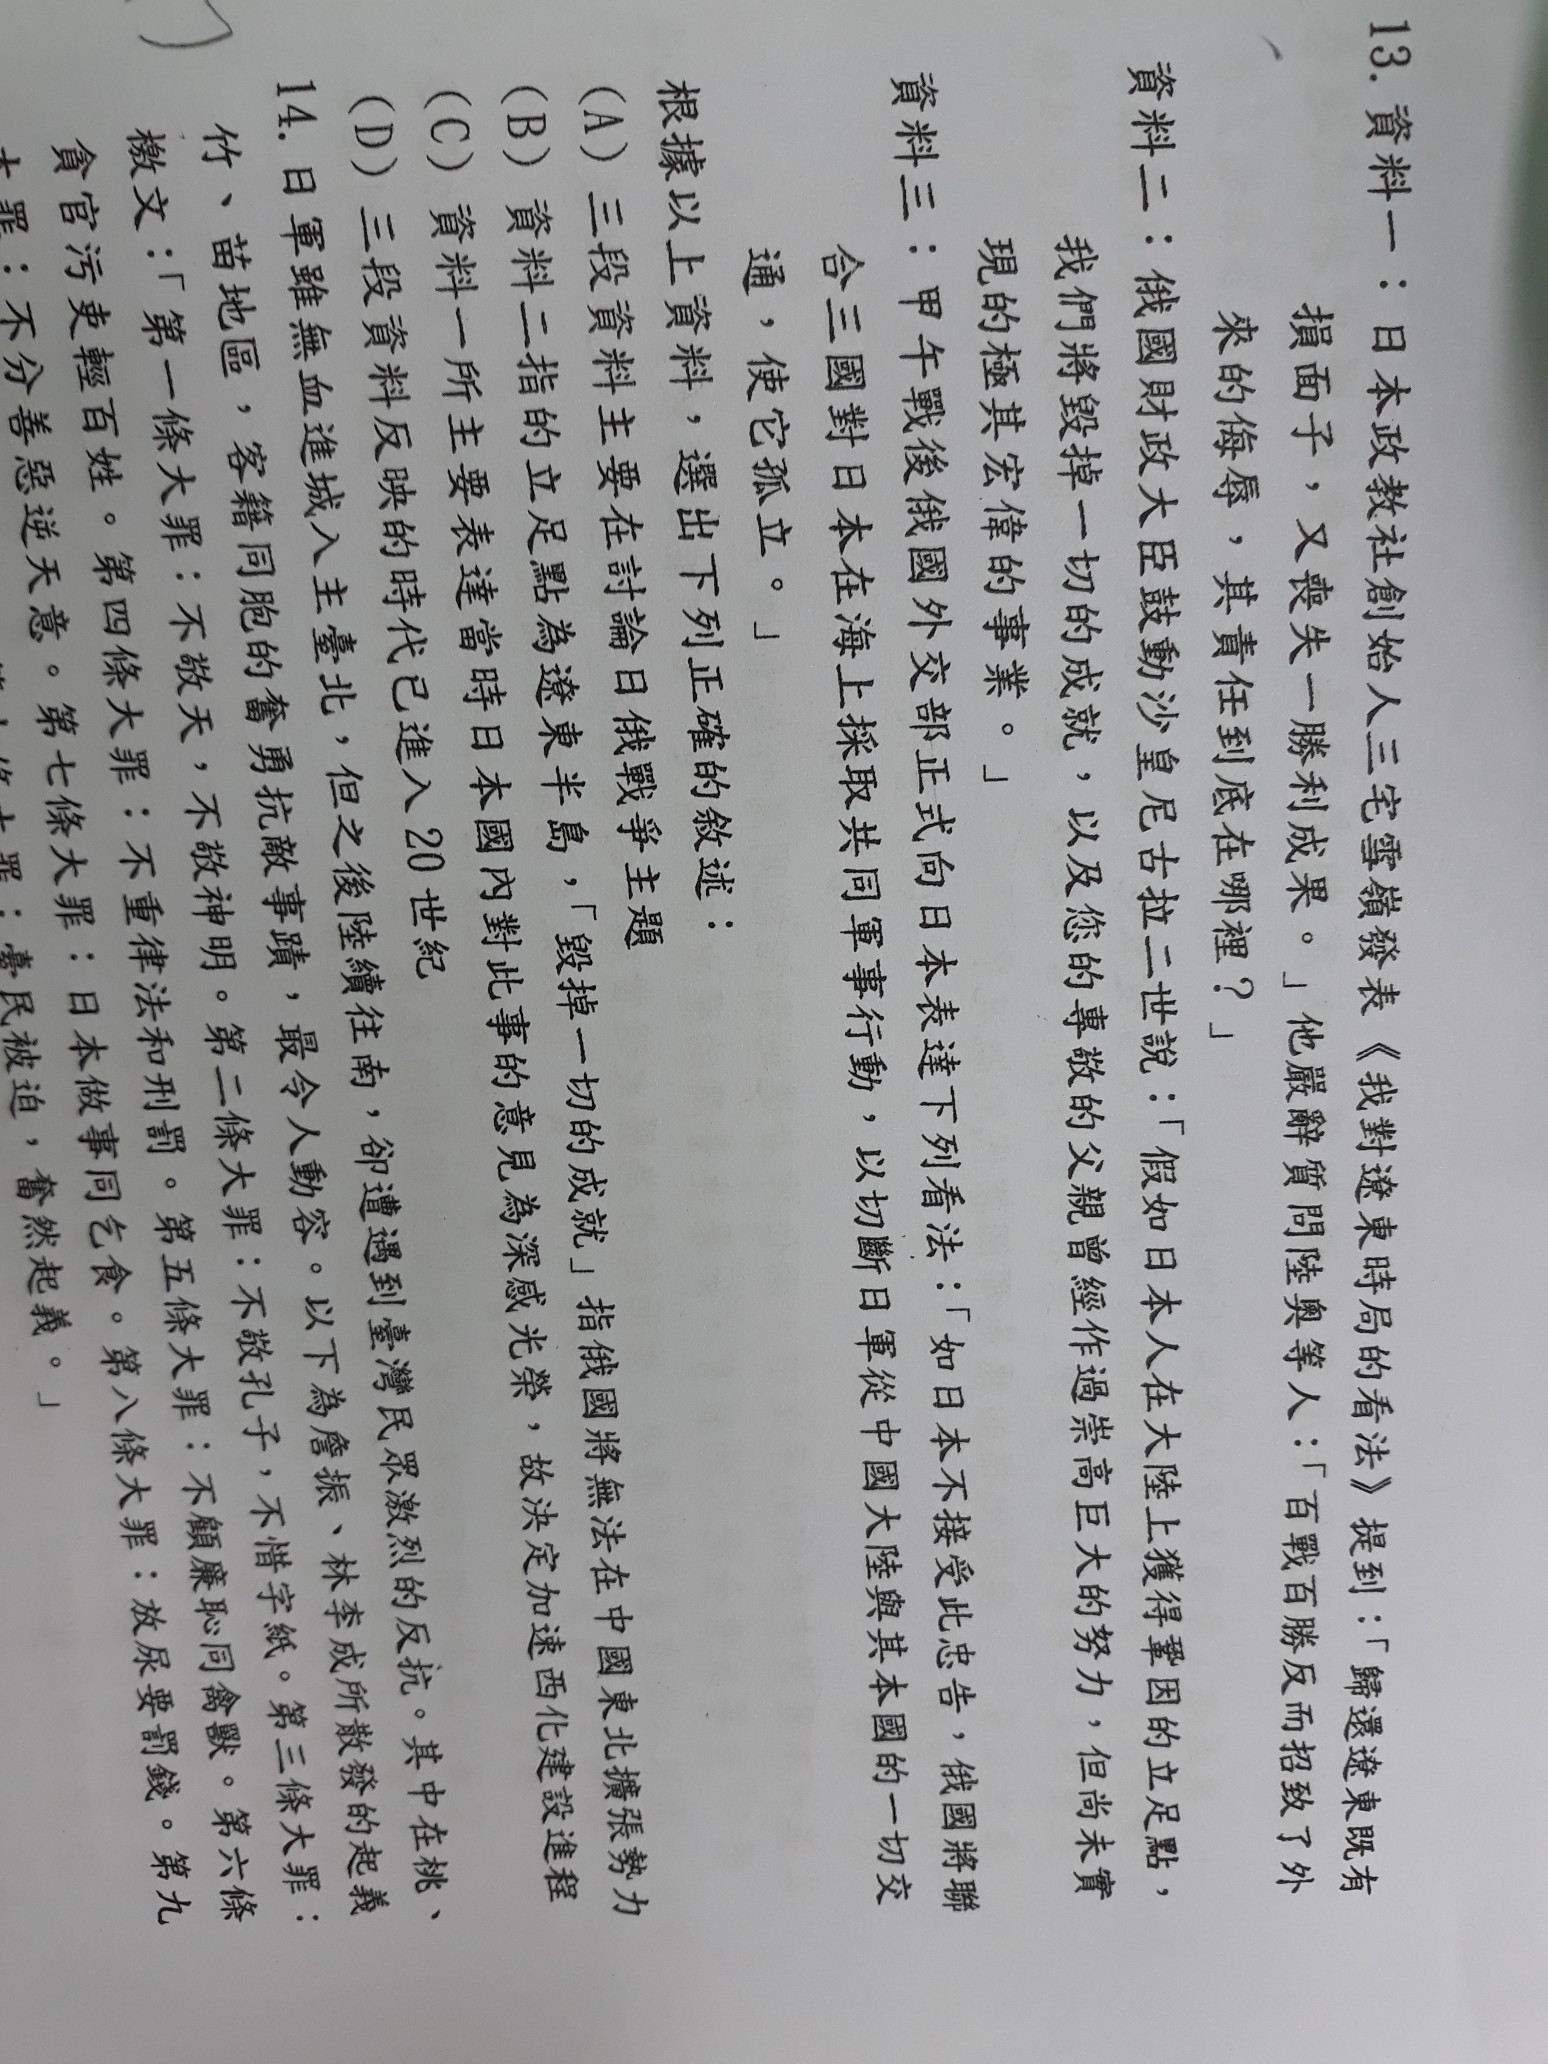 13. 資料一：日本政教社創始人三宅雪嶺發表《我對遼東時局的看法》提到：「歸還遼東既有
損面子，又喪失一勝利成果。」他嚴辭質問陸奧等人：「百戰百勝反而招致了外
來的侮辱，其責任到底在哪裡？」
資料二：俄國財政大臣鼓動沙皇尼古拉二世說：「假如日本人在大陸上獲得鞏固的立足點，
我們將毀掉一切的成就，以及您的尊敬的父親曾經作過崇高巨大的努力，但尚未實
現的極其宏偉的事業。」
資料三：甲午戰後俄國外交部正式向日本表達下列看法：「如日本不接受此忠告，俄國將聯
合三國對日本在海上採取共同軍事行動，以切斷日軍從中國大陸與其本國的一切交
通，使它孤立。」
根據以上資料，選出下列正確的敘述：
(A) 三段資料主要在討論日俄戰爭主題
(B) 資料二指的立足點為遼東半島，「毀掉一切的成就」指俄國將無法在中國東北擴張勢力
(C) 資料一所主要表達當時日本國內對此事的意見為深感光榮，故決定加速西化建設進程
(D) 三段資料反映的時代已進入20世紀
14. 日軍雖無血進城入主臺北，但之後陸續往南，卻遭遇到臺灣民眾激烈的反抗。其中在桃、
竹、苗地區，客籍同胞的奮勇抗敵事蹟，最令人動容。以下為詹振、林李成所散發的起義
檄文：「第一條大罪：不敬天，不敬神明。第二條大罪：不敬孔子，不惜字紙。第三條大罪：
貪官污吏輕百姓。第四條大罪：不重律法和刑罰。第五條大罪：不顧廉恥同禽獸。第六條
大罪：不分善惡逆天意。第七條大罪：日本做事同乞食。第八條大罪：放尿要罰錢。第九
大罪：臺民被迫，奮然起義。」